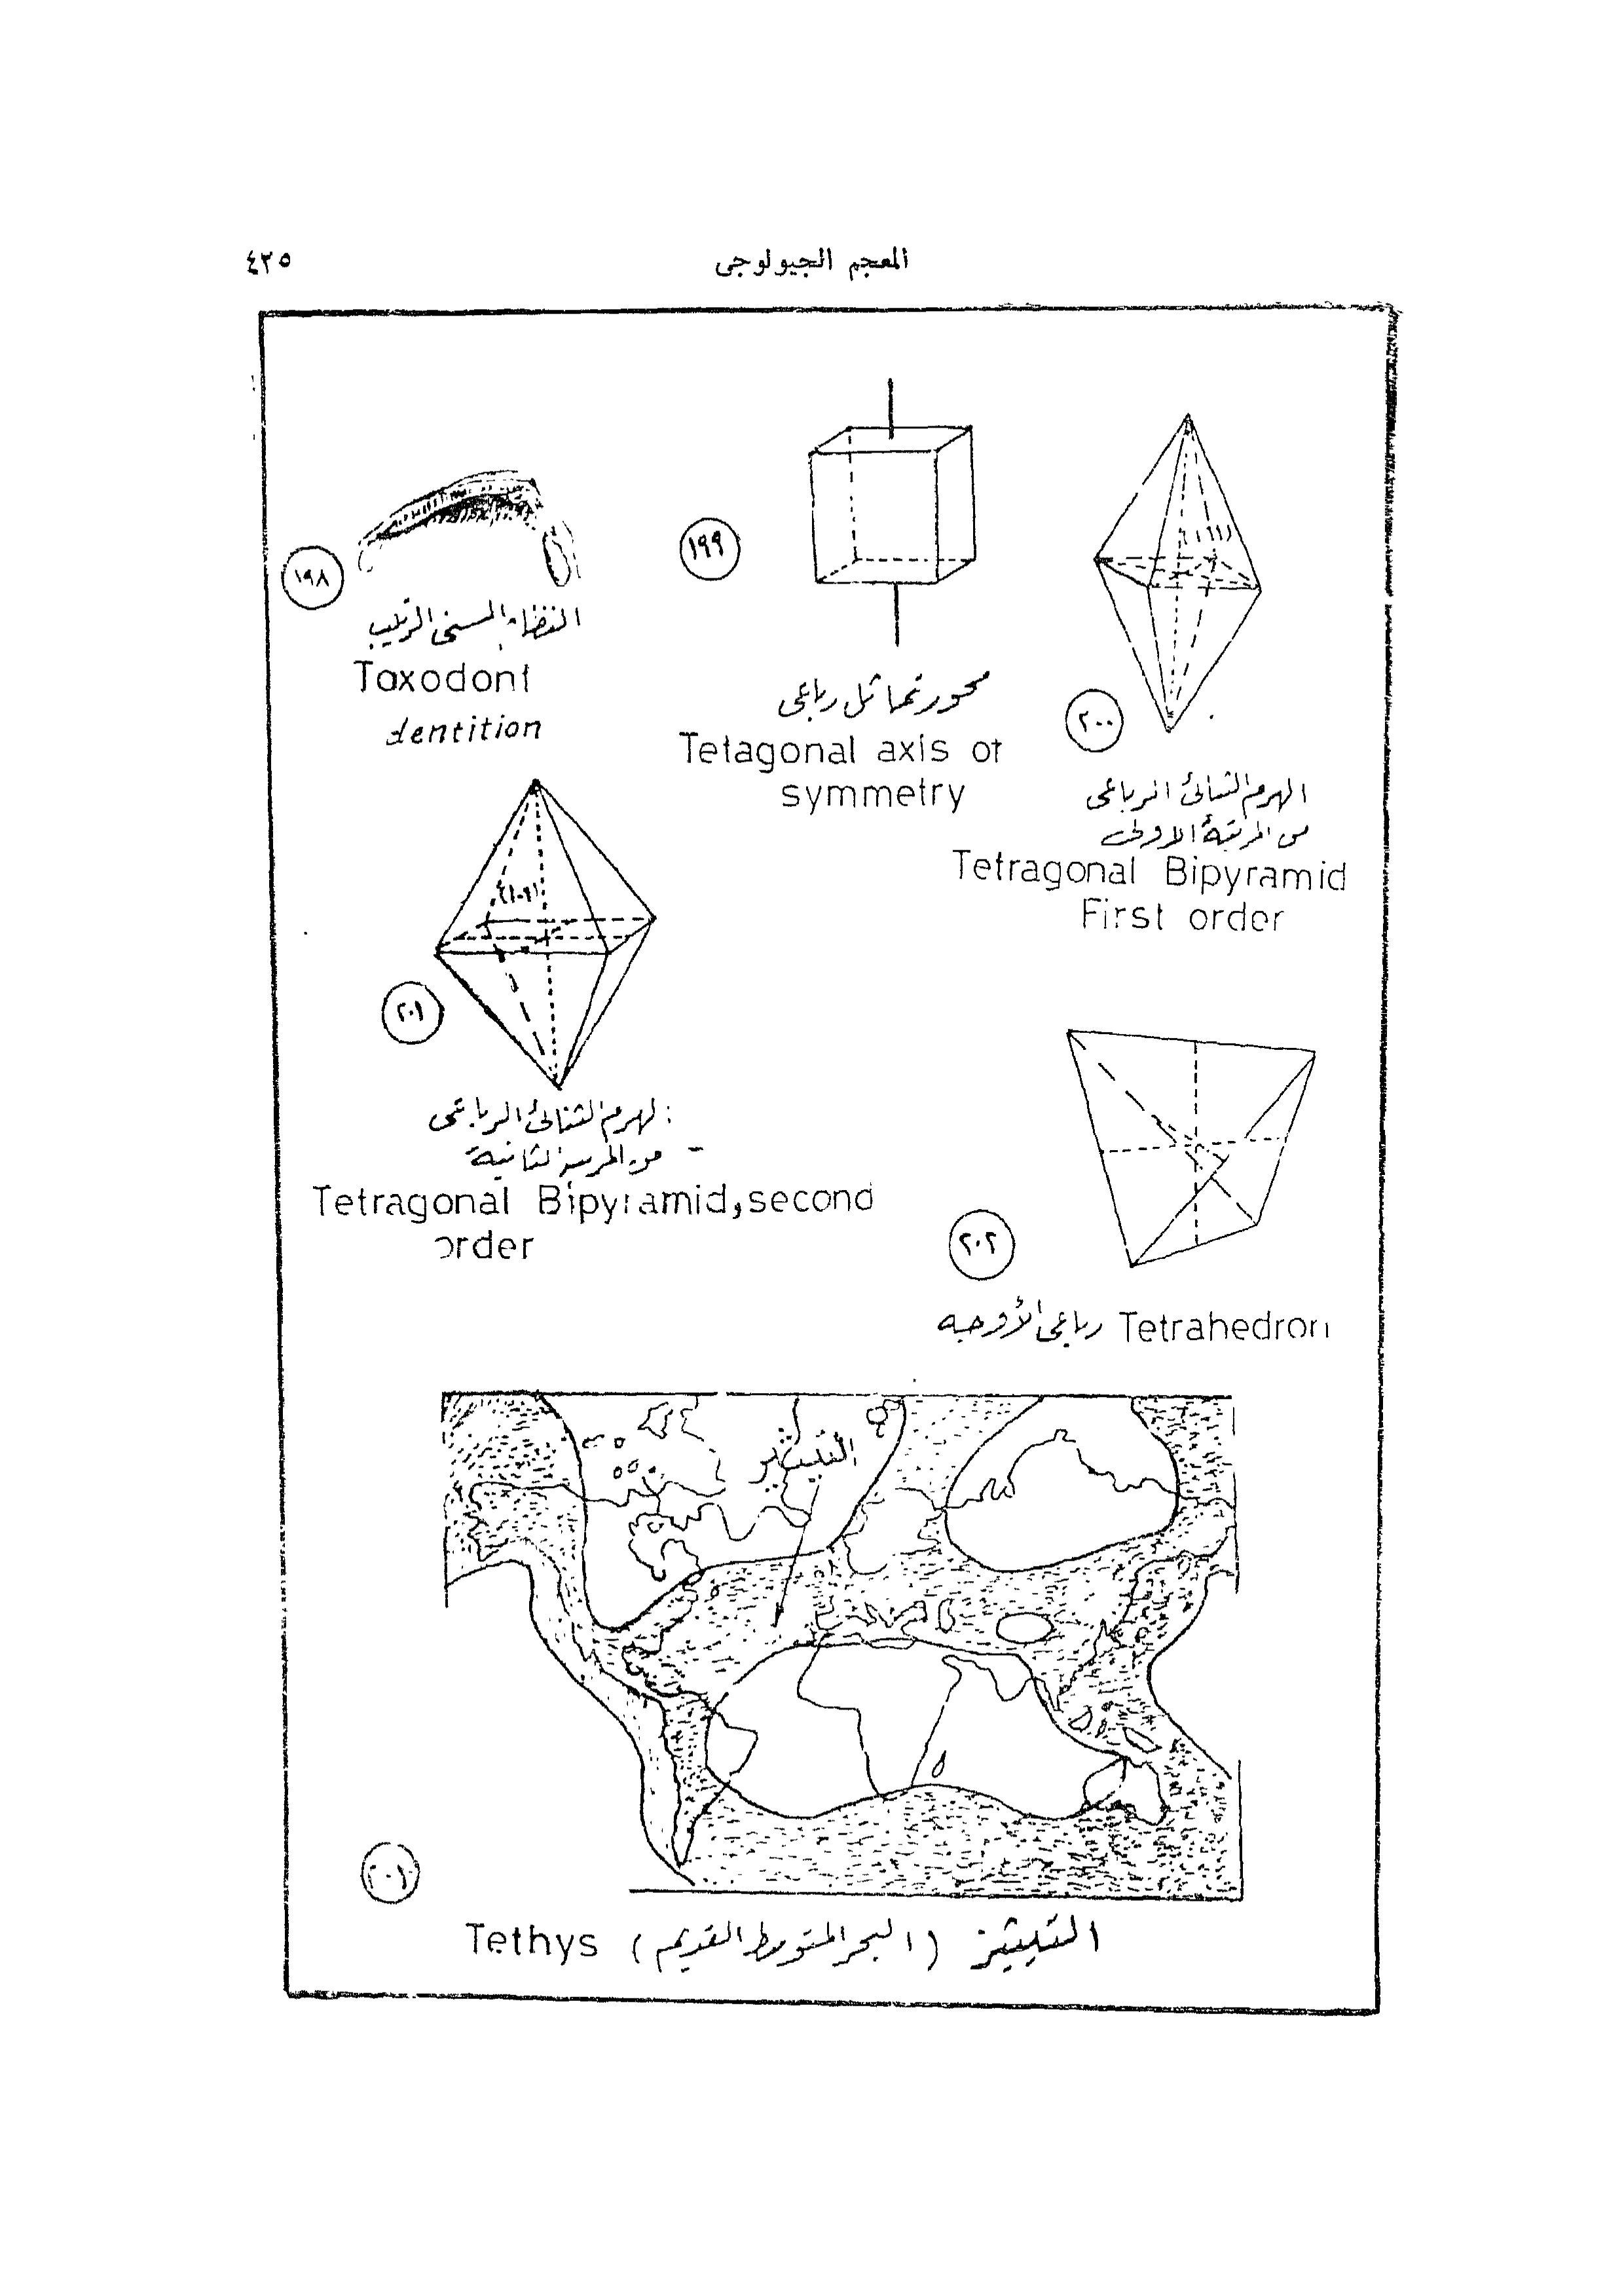 المعجم الجيولوجى
٤٢٥
١٩٨
Taxodont
dentition
١٩٩
محور تماثل رباعى
Tetagonal axis of
symmetry
٢٠٠
الهرم الثنائى الرباعى
من المرتبة الأولى
Tetragonal Bipyramid
First order
٢٠١
الهرم الثنائى الرباعى
من المرتبة الثانية
Tetragonal Bipyramid, second
order
٢٠٢
رباعى الأوجه Tetrahedron
التيثيز
التيثيز (البحر المتوسط القديم) Tethys